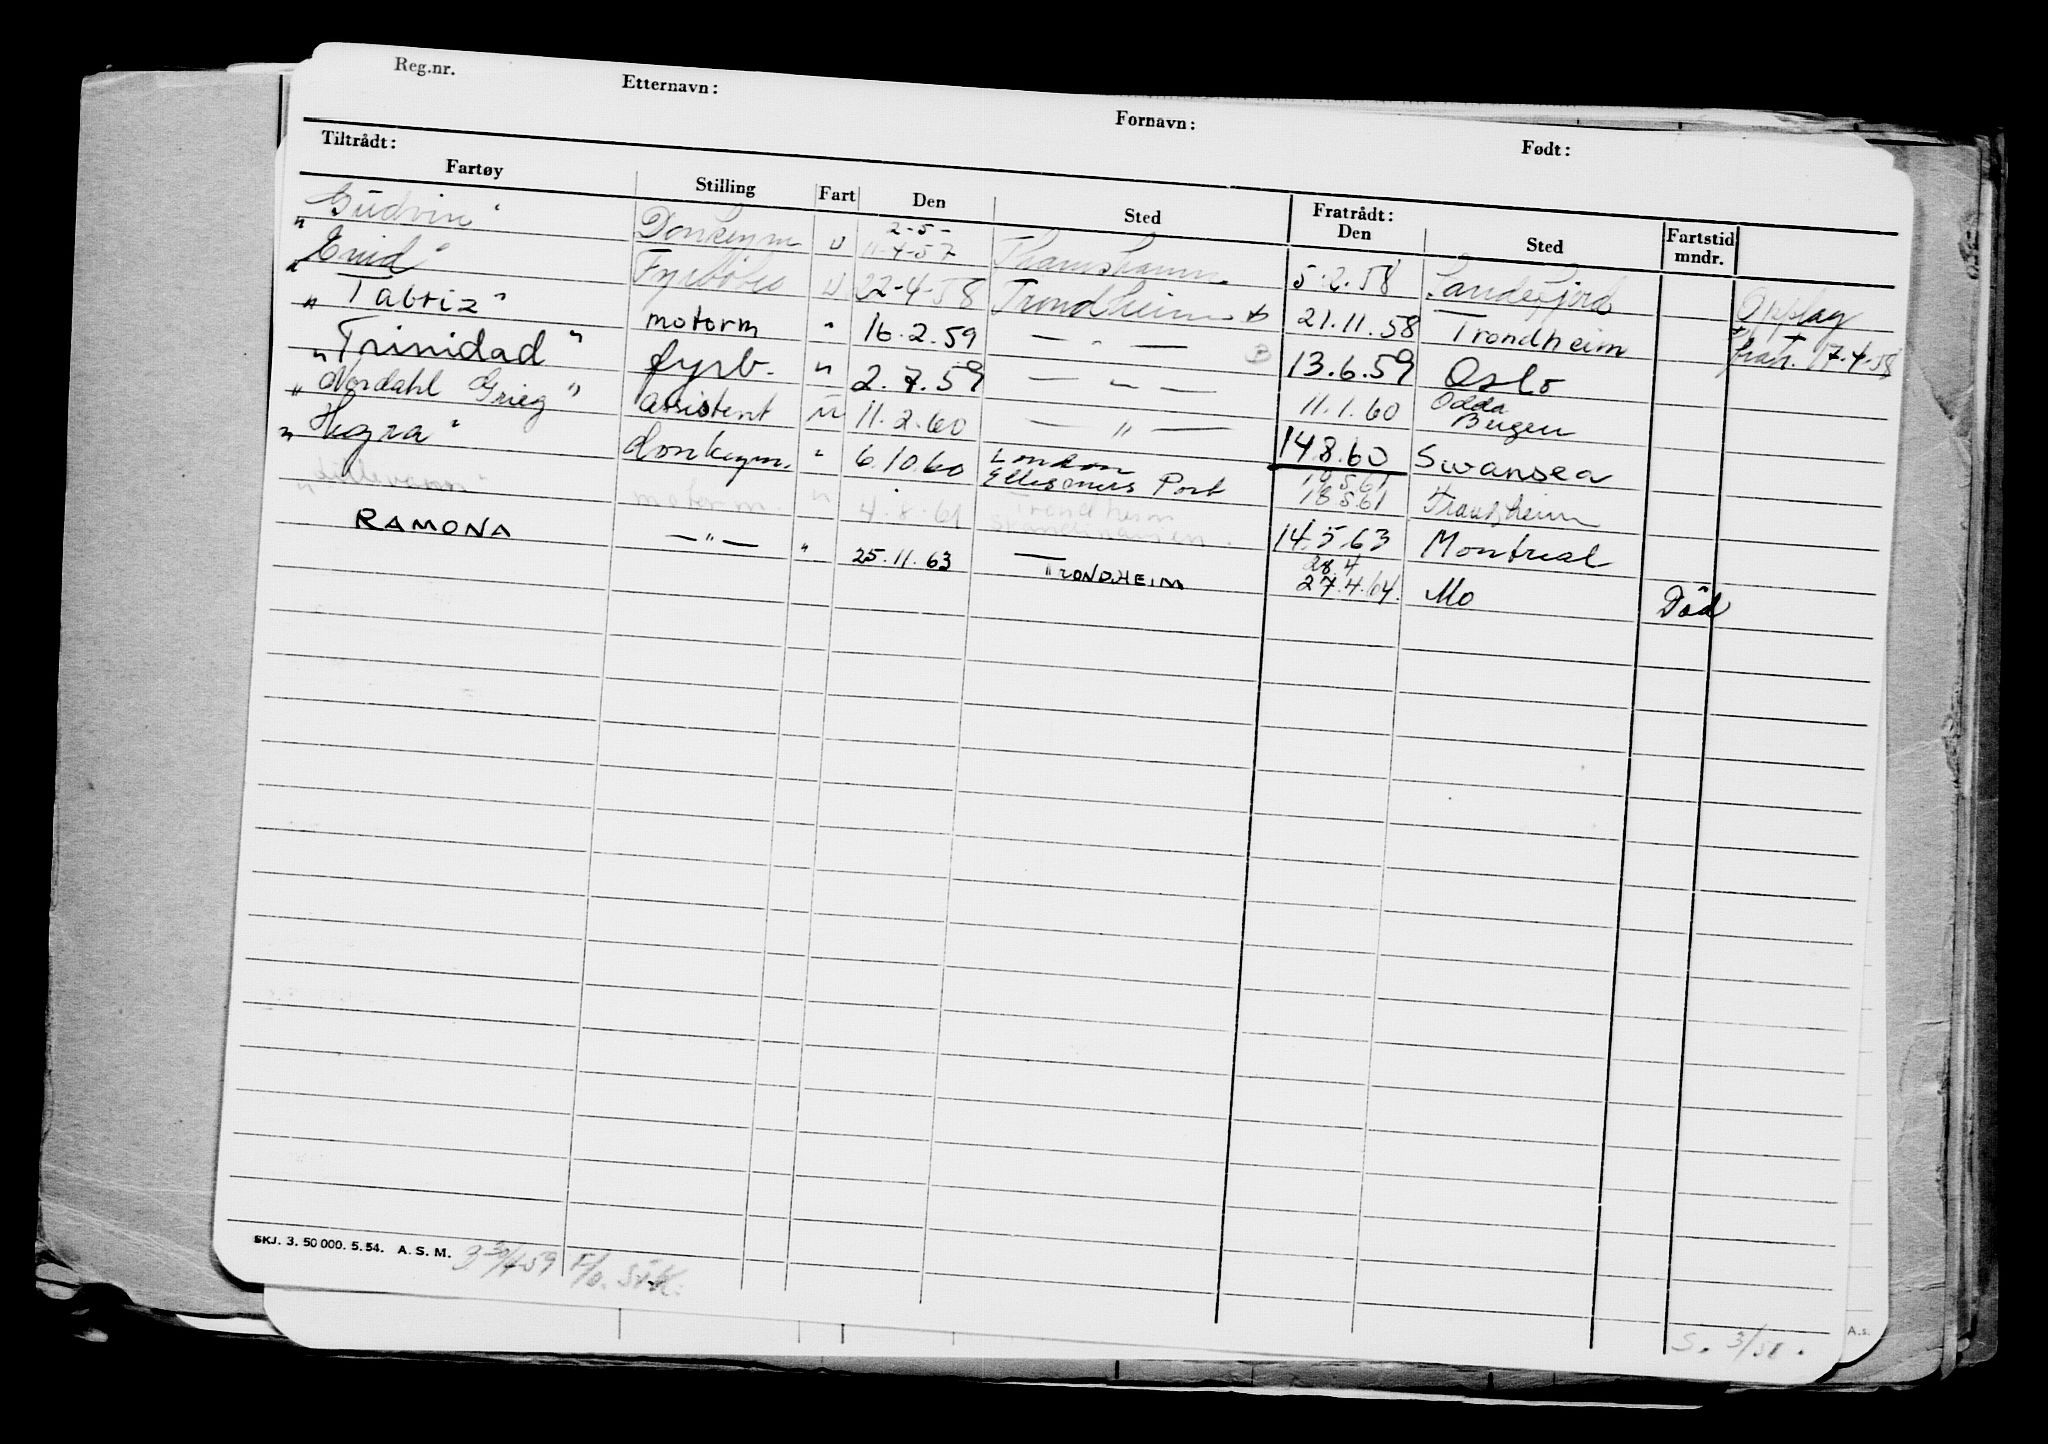 Reg.nr. Etternavn: Fornavn: Født:
Tiltrådt: Fratrådt:
Fartøy Stilling Fart Den Sted Den Sted Fartstid mndr.
"Gudvin" Donkeym U 2-5- 11-4-57 Thamshamn 5.2.58 Sandefjord Opplag
"Enid" Fyrbøter U 22-4-58 Trondheim 21.11.58 Trondheim 17.4.58
"Tabriz" motorm " 16.2.59 — " — B 13.6.59 Oslo
"Trinidad" fyrb. " 2.7.59 — " — 11.1.60 Odda
"Nordahl Grieg" assistent " 11.2.60 — " — 14.8.60 Bergen Swansea
"Hegra" donkeym. " 6.10.60 London Port 18.5.61 Trondheim
motorm. " 4.8.61 Trondheim 14.5.63 Montreal
RAMONA — " — " 25.11.63 TRONDHEIM 28.4 27.4.64. Mo Död
SKJ. 3. 50 000. 5. 54. A. S. M.
S. 3/51.
A.s.